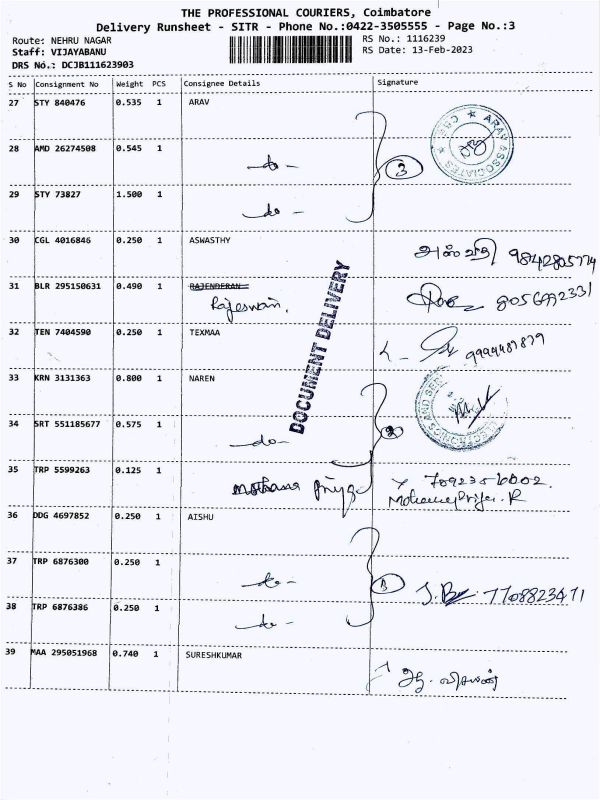 THE PROFESSIONAL COURIERS, Coimbatore
Delivery Runsheet - SITR - Phone No.:0422-3505555 - Page No.:3
Route: NEHRU NAGAR RS No.: 1116239
Staff: VIJAYABANU RS Date: 13-Feb-2023
DRS No.: DCJB111623903
S No Consignment No Weight PCS Consignee Details Signature
27 STY 840476 0.535 1 ARAV
ARAV ASSOCIATES ★ CBE ★
28 AMD 26274508 0.545 1 -do-
3
29 STY 73827 1.500 1 -do-
30 CGL 4016846 0.250 1 ASWASTHY 9842805774
31 BLR 295150631 0.490 1 RAJENDERAN
Rajeswari.
DOCUMENT DELIVERY
32 TEN 7404590 0.250 1 TEXMAA
33 KRN 3131363 0.800 1 NAREN
34 SRT 551185677 0.575 1 -do-
35 TRP 5599263 0.125 1 Mohana Priya
36 DDG 4697852 0.250 1 AISHU
37 TRP 6876300 0.250 1 -do-
7708823471
38 TRP 6876386 0.250 1 -do-
39 MAA 295051968 0.740 1 SURESHKUMAR